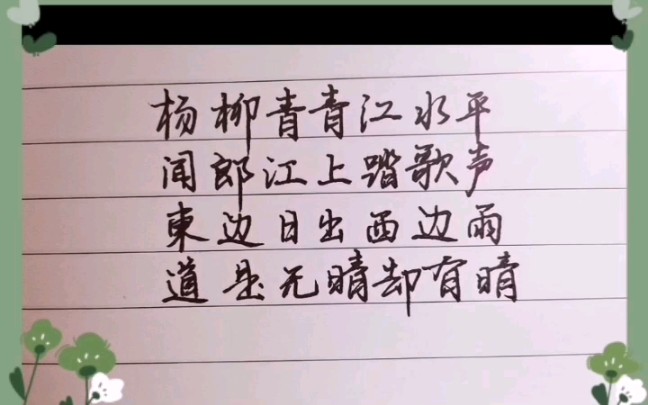 杨柳青青江水平
闻郎江上踏歌声
東边日出西边雨
道是无晴却有晴